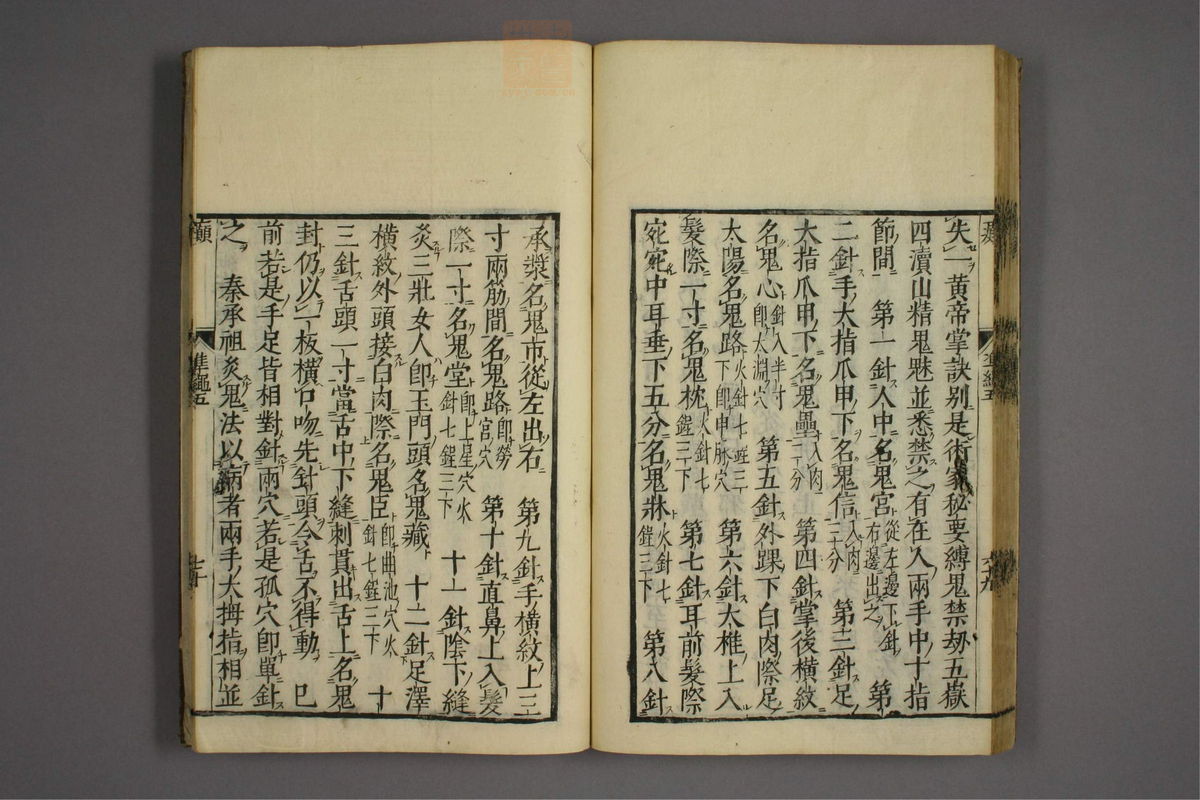 失一黄帝掌訣别是術家秘要縛鬼禁劾五嶽
四瀆山精鬼魅並悉禁之有在人兩手中十指
節間　第一針人中名鬼宮從左邊下針右邊出之　第
二針手大指爪甲下名鬼信入肉三分　第三針足
大指爪甲下名鬼壘入肉二分　第四針掌後横紋
名鬼心針入半寸即太淵穴　第五針外踝下白肉際足
太陽名鬼路火針七鋥三下即申脉穴　第六針大椎上入
髮際一寸名鬼枕火針七鋥三下　第七針耳前髮際
宛宛中耳垂下五分名鬼牀火針七鋥三下　第八針
承漿名鬼市從左出右　第九針手横紋上三
寸兩筋間名鬼路即勞宮穴　第十針直鼻上入髮
際一寸名鬼堂即上星穴火針七鋥三下　十一針陰下縫
灸三壯女人即玉門頭名鬼藏　十二針足澤
横紋外頭接白肉際名鬼臣即曲池穴火針七鋥三下　十
三針舌頭一寸當舌中下縫刺貫出舌上名鬼
封仍以一板横口吻先針頭令舌不得動　已
前若是手足皆相對針兩穴若是孤穴即單針
之　秦承祖灸鬼法以病者兩手大拇指相並
準繩五
七十